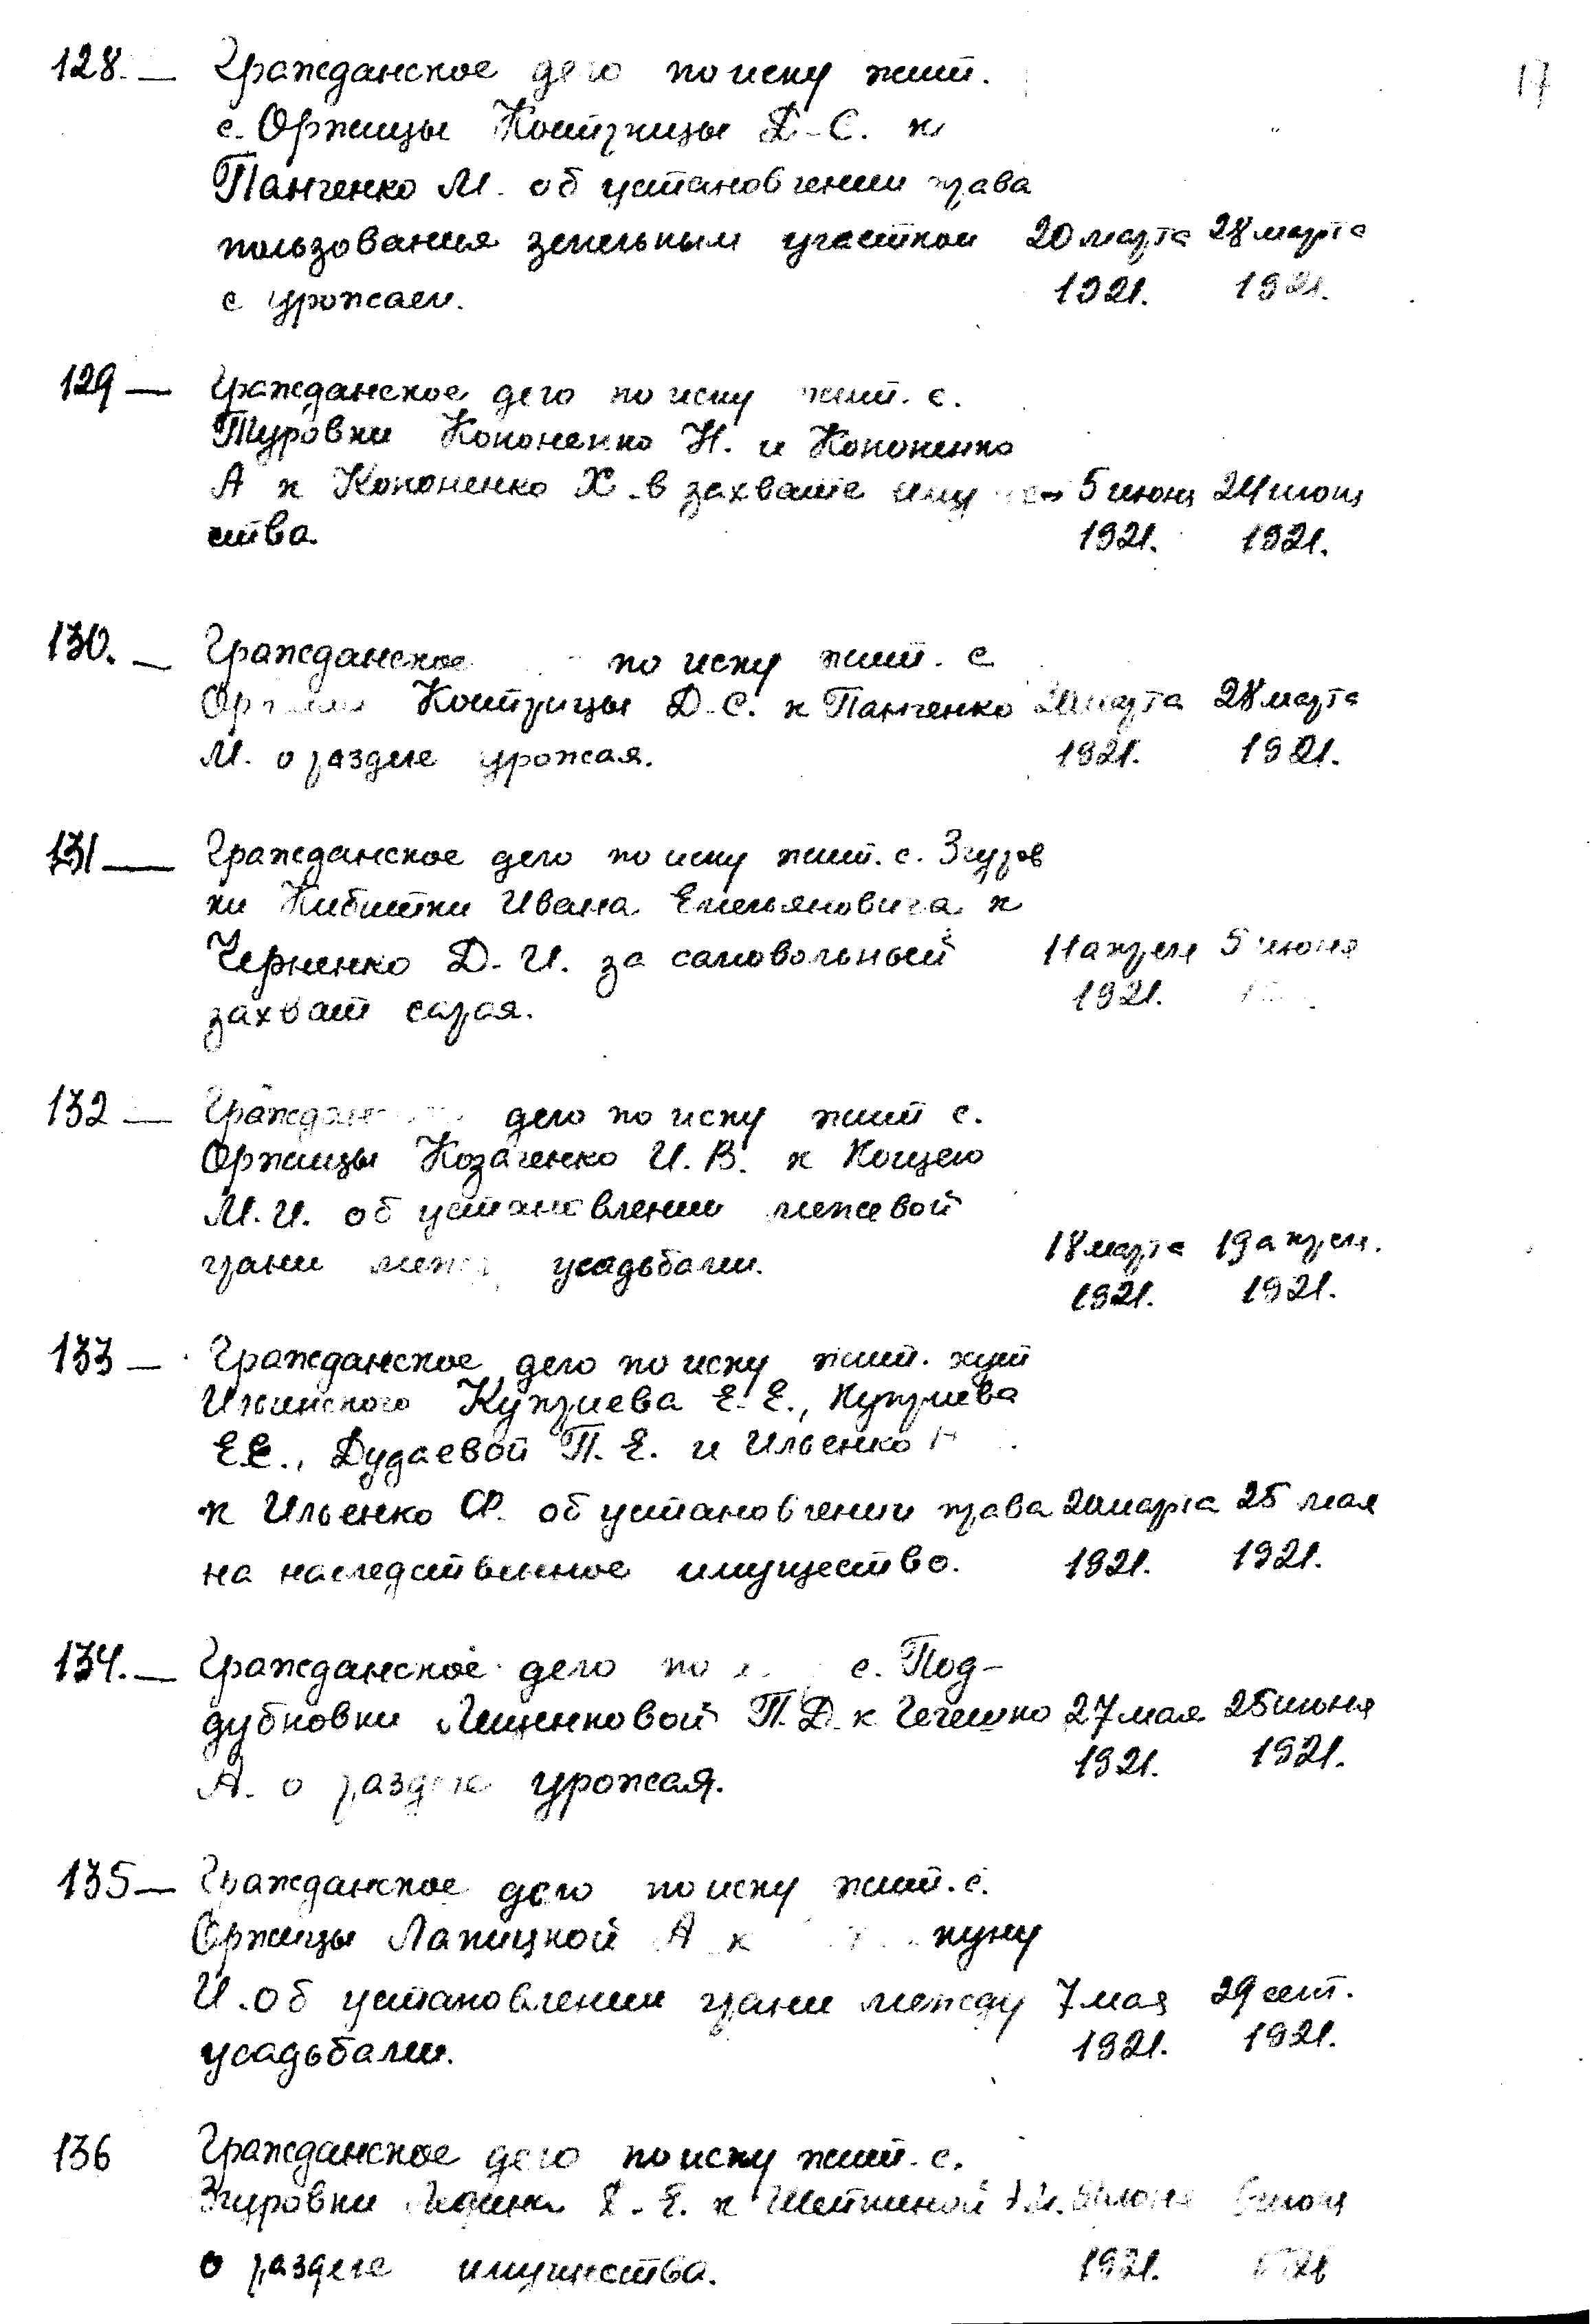 17
128. — Гражданское дело по иску жит.
с. Оржицы Костррицы Д.С. к
Панченко М. об установлении права
пользования земельным участком 20 марта 28 марта
с урожаем. 1921. 1921.
129 — Гражданское дело по иску жит. с.
Туровки Кононенко Н. и Кононенко
А к Кононенко Х. в захвате 5 июня 24 июня
ства. 1921. 1921.
130. — Гражданское по иску жит. с
Костррицы Д.С. к Панченко 20 марта 28 марта
М. о разделе урожая. 1921. 1921.
131 — Гражданское дело по иску жит. с. Згуров
ки Кибитки Ивана Емельяновича к
Черненко Д.И. за самовольный 11 апреля 5 июня
захват сарая. 1921.
132 — Гражданское дело по иску жит с.
Оржицы Козаченко И.В. к Кощею
М.И. об установлении межевой
грани между усадьбами. 18 марта 19 апрел.
1921. 1921.
133 — Гражданское дело по иску жит. хут
Куприева Е.Е., Куприева
Е.Е., Дудаевой П.Е. и Ильенко
к Ильенко Ф. об установлении права 20 марта 25 мая
на наследственное имущество. 1921. 1921.
134. — Гражданское дело по с. Под-
дубновки Лещенковой П.Д. к 27 мая 25 июня
А. о разделе урожая. 1921. 1921.
135 — Гражданское дело по иску жит. с.
Оржицы Лапицкой А к
И. об установлении грани между 7 мая 29 сент.
усадьбами. 1921. 1921.
136 Гражданское дело по иску жит. с.
Згуровки Е. к Щеткиной
о разделе имущества. 1921.